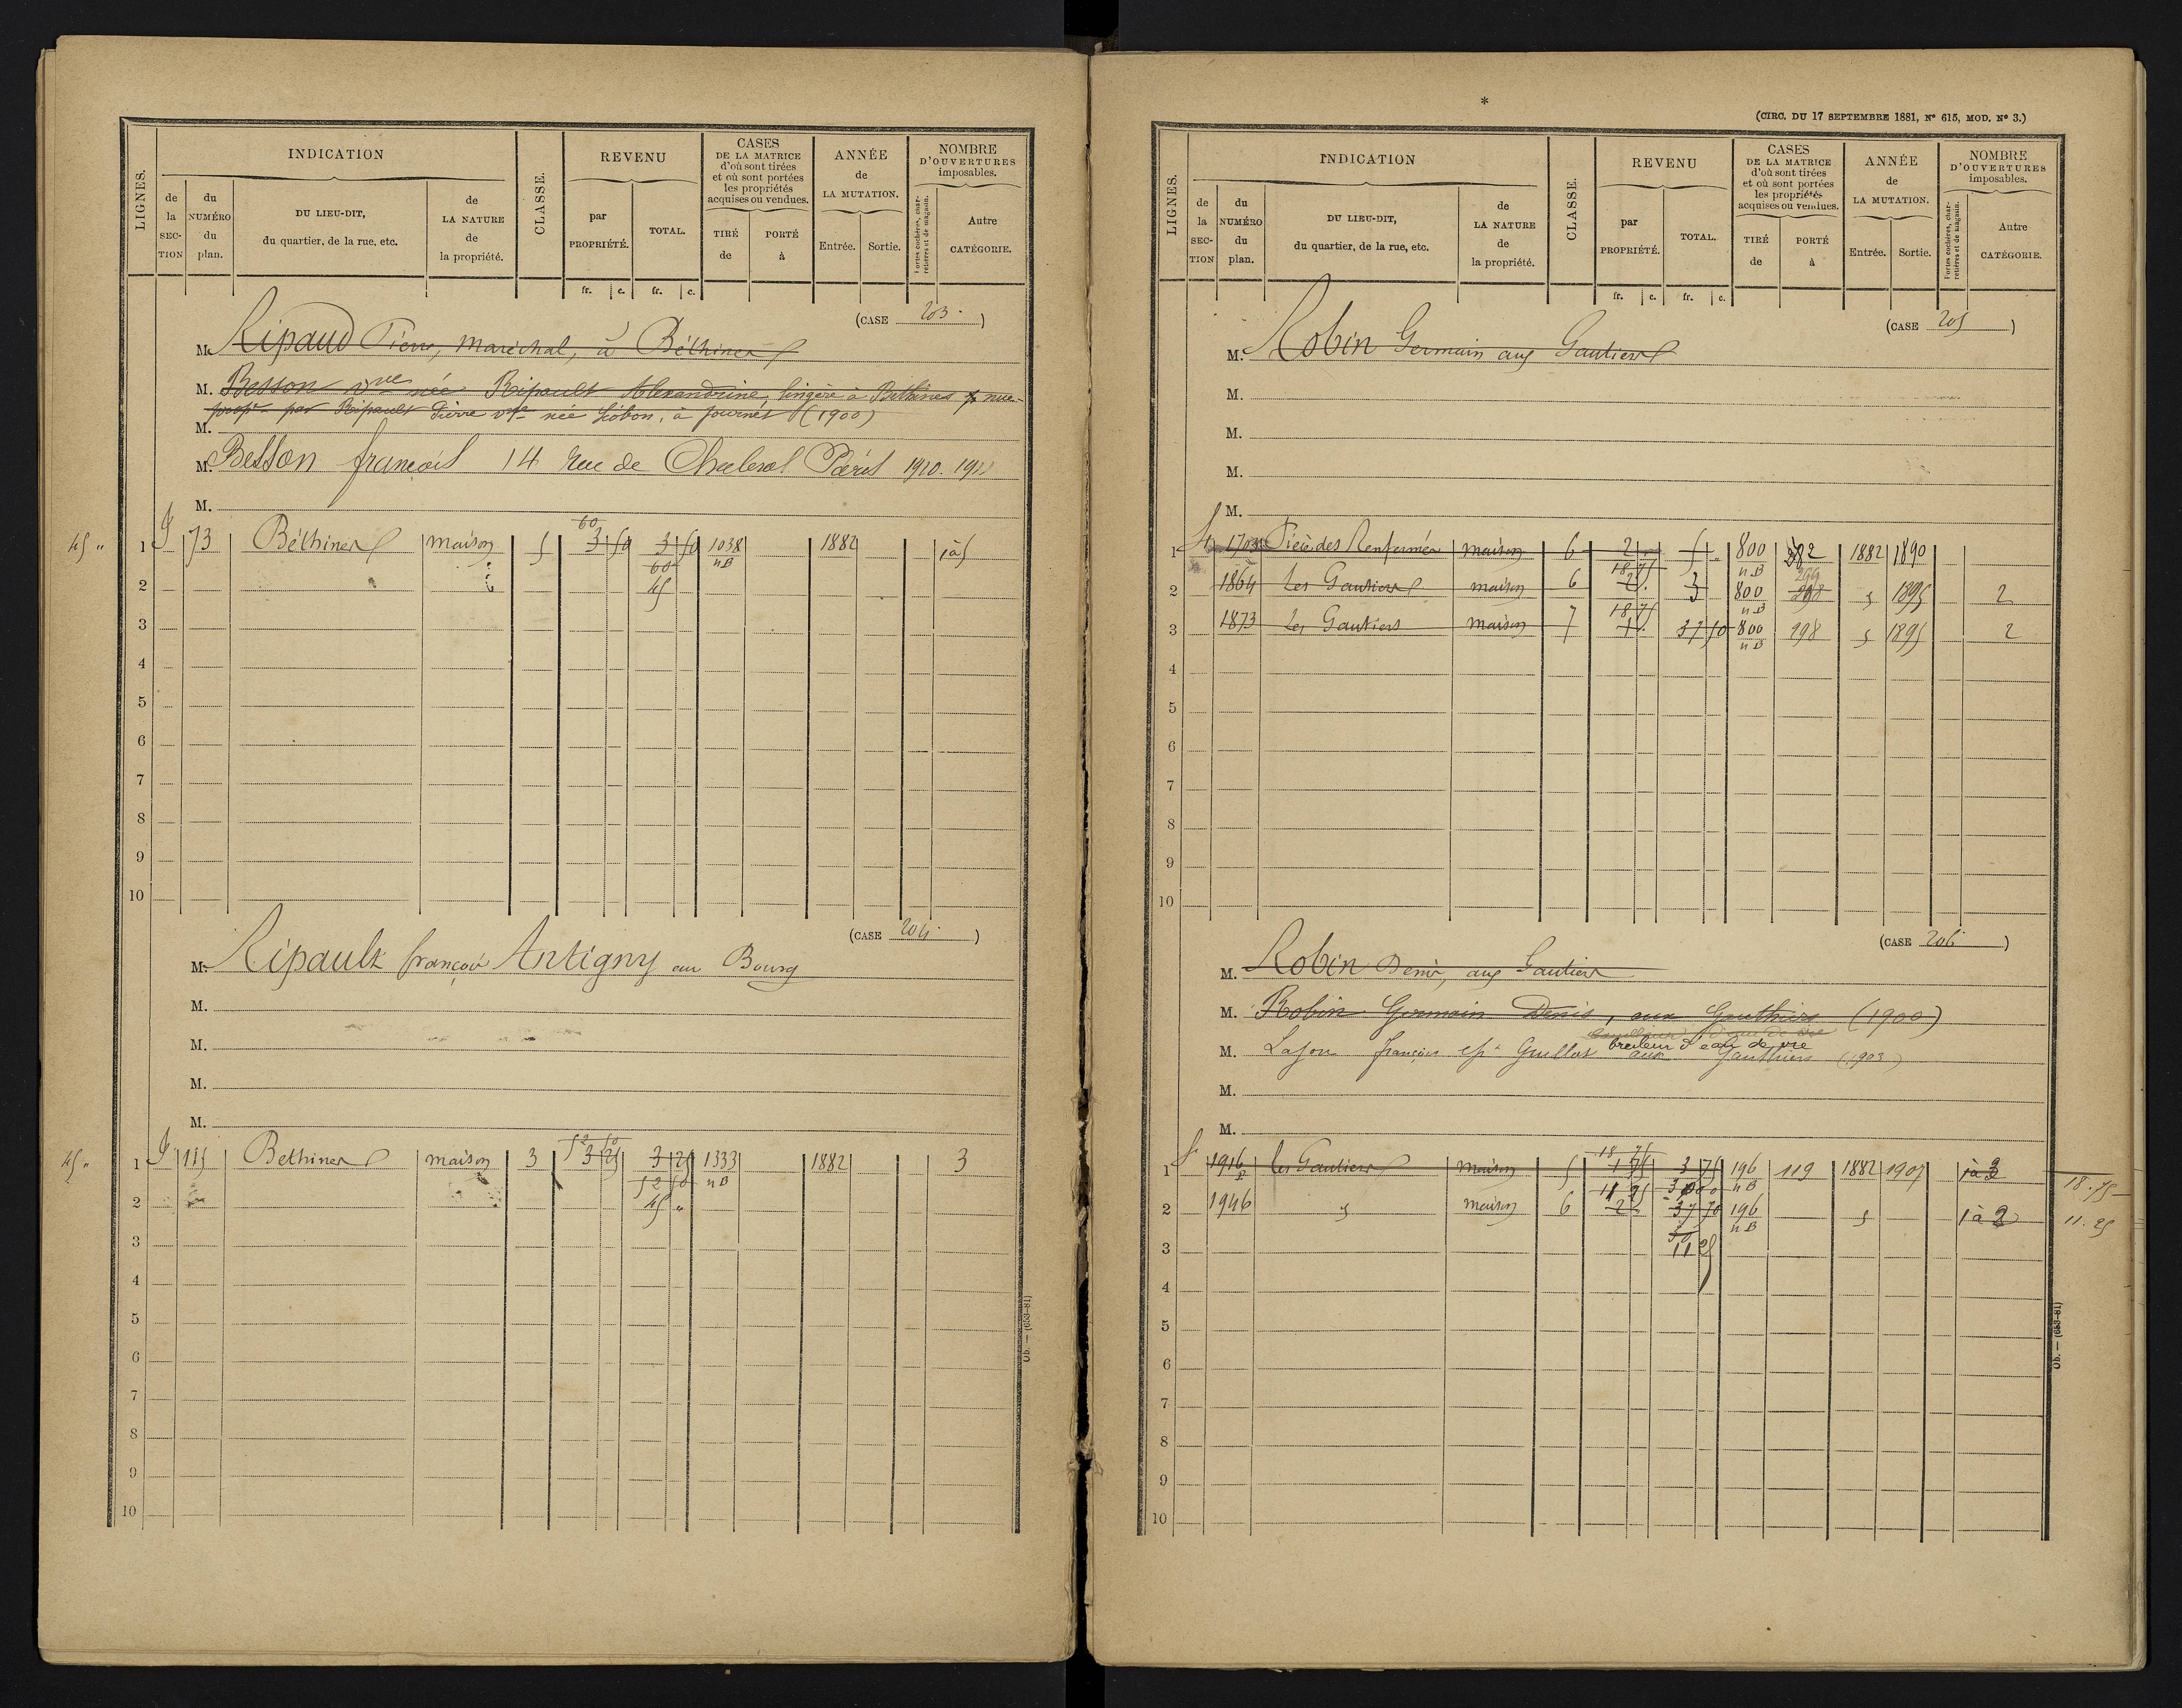 LIGNES.
INDICATION
CLASSE.
REVENU
CASES
DE LA MATRICE
d'où sont tirées
et où sont portées
les propriétés
acquises ou vendues.
ANNÉE
de
LA MUTATION.
NOMBRE
D'OUVERTURES
imposables.
de la SECTION
du NUMÉRO du plan.
DU LIEU-DIT,
du quartier, de la rue, etc.
de LA NATURE de la propriété.
par PROPRIÉTÉ.
TOTAL.
TIRÉ de
PORTÉ à
Entrée.
Sortie.
Portes cochères, charretières et de magasin.
Autre CATÉGORIE.
fr. c. fr. c.
(CASE 203.)
M. Ripaud Pierre, maréchal, à Béthines
M. Besson vve née Ripault Alexandrine, lingère à Béthines
par Ripault Pierre vve née à fournet (1900)
M.
M. Besson françois 14 Rue de Paris 1920.
M.
45 "
1 73 Béthines maison 5 60 3 50 3 50 1038 nB 1882 1 à 5
2 60 45
3
4
5
6
7
8
9
10
(CASE 204.)
M. Ripault françois Antigny au Bourg
M.
M.
M.
M.
45 "
1 115 Bethines maison 3 52 50 3 25 3 25 1333 nB 1882 3
2 52 50 45 "
3
4
5
6
7
8
9
10
Ob. — (653-81)
*
(CIRC. DU 17 SEPTEMBRE 1881, N° 615, MOD. N° 3.)
LIGNES.
INDICATION
CLASSE.
REVENU
CASES
DE LA MATRICE
d'où sont tirées
et où sont portées
les propriétés
acquises ou vendues.
ANNÉE
de
LA MUTATION.
NOMBRE
D'OUVERTURES
imposables.
de la SECTION
du NUMÉRO du plan.
DU LIEU-DIT,
du quartier, de la rue, etc.
de LA NATURE de la propriété.
par PROPRIÉTÉ.
TOTAL.
TIRÉ de
PORTÉ à
Entrée.
Sortie.
Portes cochères, charretières et de magasin.
Autre CATÉGORIE.
fr. c. fr. c.
(CASE 205)
M. Robin Germain aux Gautiers
M.
M.
M.
M.
1 1703 des Renfermés maison 6 2 5 800 nB 1882 1890
2 1864 Les Gautiers maison 6 18.75 2 3 800 nB 299 1895 2
3 1873 Les Gautiers maison 7 18.75 1 37 50 800 nB 298 1895 2
4
5
6
7
8
9
10
(CASE 206)
M. Robin Denis, aux Gautiers
M. Robin Germain Denis, aux Gauthiers (1900)
bruleur d'eau de vie
M. françois Guillot aux Gauthiers (1903)
M.
M.
1 1916 P. les Gautiers maison 5 18 75 1 75 3 75 196 nB 119 1882 1907 1 à 3
18.75
2 1946 maison 6 11 25 2 196 nB 1 à 2
11.25
3 30 11 25
4
5
6
7
8
9
10
Ob. — (653-81)